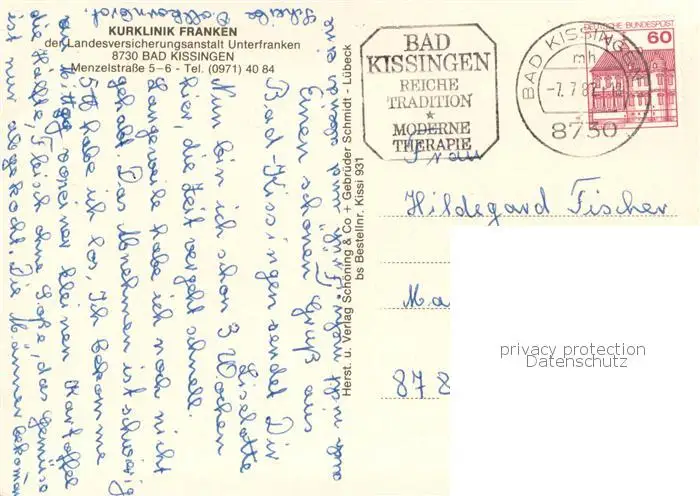 KURKLINIK FRANKEN
der Landesversicherungsanstalt Unterfranken
8730 BAD KISSINGEN
Menzelstraße 5-6 - Tel. (0971) 40 84
Einen schönen Gruß aus
Bad-Kissingen sendet Dir
Liselotte
Nun bin ich schon 3 Wochen
hier, die Zeit vergeht schnell.
Langeweile habe ich noch nicht
gehabt. Das Abnehmen ist schwierig
5 habe ich los, Ich bekomme
Mittag so einer kleinen Kartoffel
die Hälfte, Fleisch ohne Soße, das Gemüse
ist nur abgekocht. Die Männer bekomm
Scheibe Vollkornbrot.
Herst. u. Verlag Schöning & Co + Gebrüder Schmidt - Lübeck
bs Bestellnr. Kissi 931
BAD
KISSINGEN
REICHE
TRADITION
*
MODERNE
THERAPIE
BAD KISSINGEN
mh
-7.7.8
8730
DEUTSCHE BUNDESPOST
60
Frau
Hildegard Fischer
Ma
878
privacy protection
Datenschutz